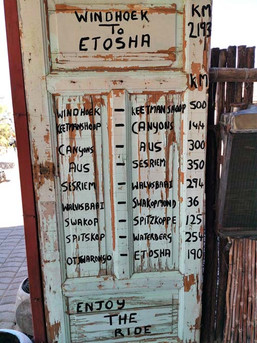 WINDHOEK KM
To 2193
ETOSHA
KM
WINDHOEK - KEETMANSHOOP 500
KEETMANSHOOP - CANYONS 144
CANYONS - AUS 300
AUS - SESRIEM 350
SESRIEM - 294
- SWAKOPMOND 36
SWAKOP - SPITZKOPPE 125
SPITSKOP - WATERBERG 254
OTJIWARONGO - ETOSHA 190
ENJOY
THE
RIDE